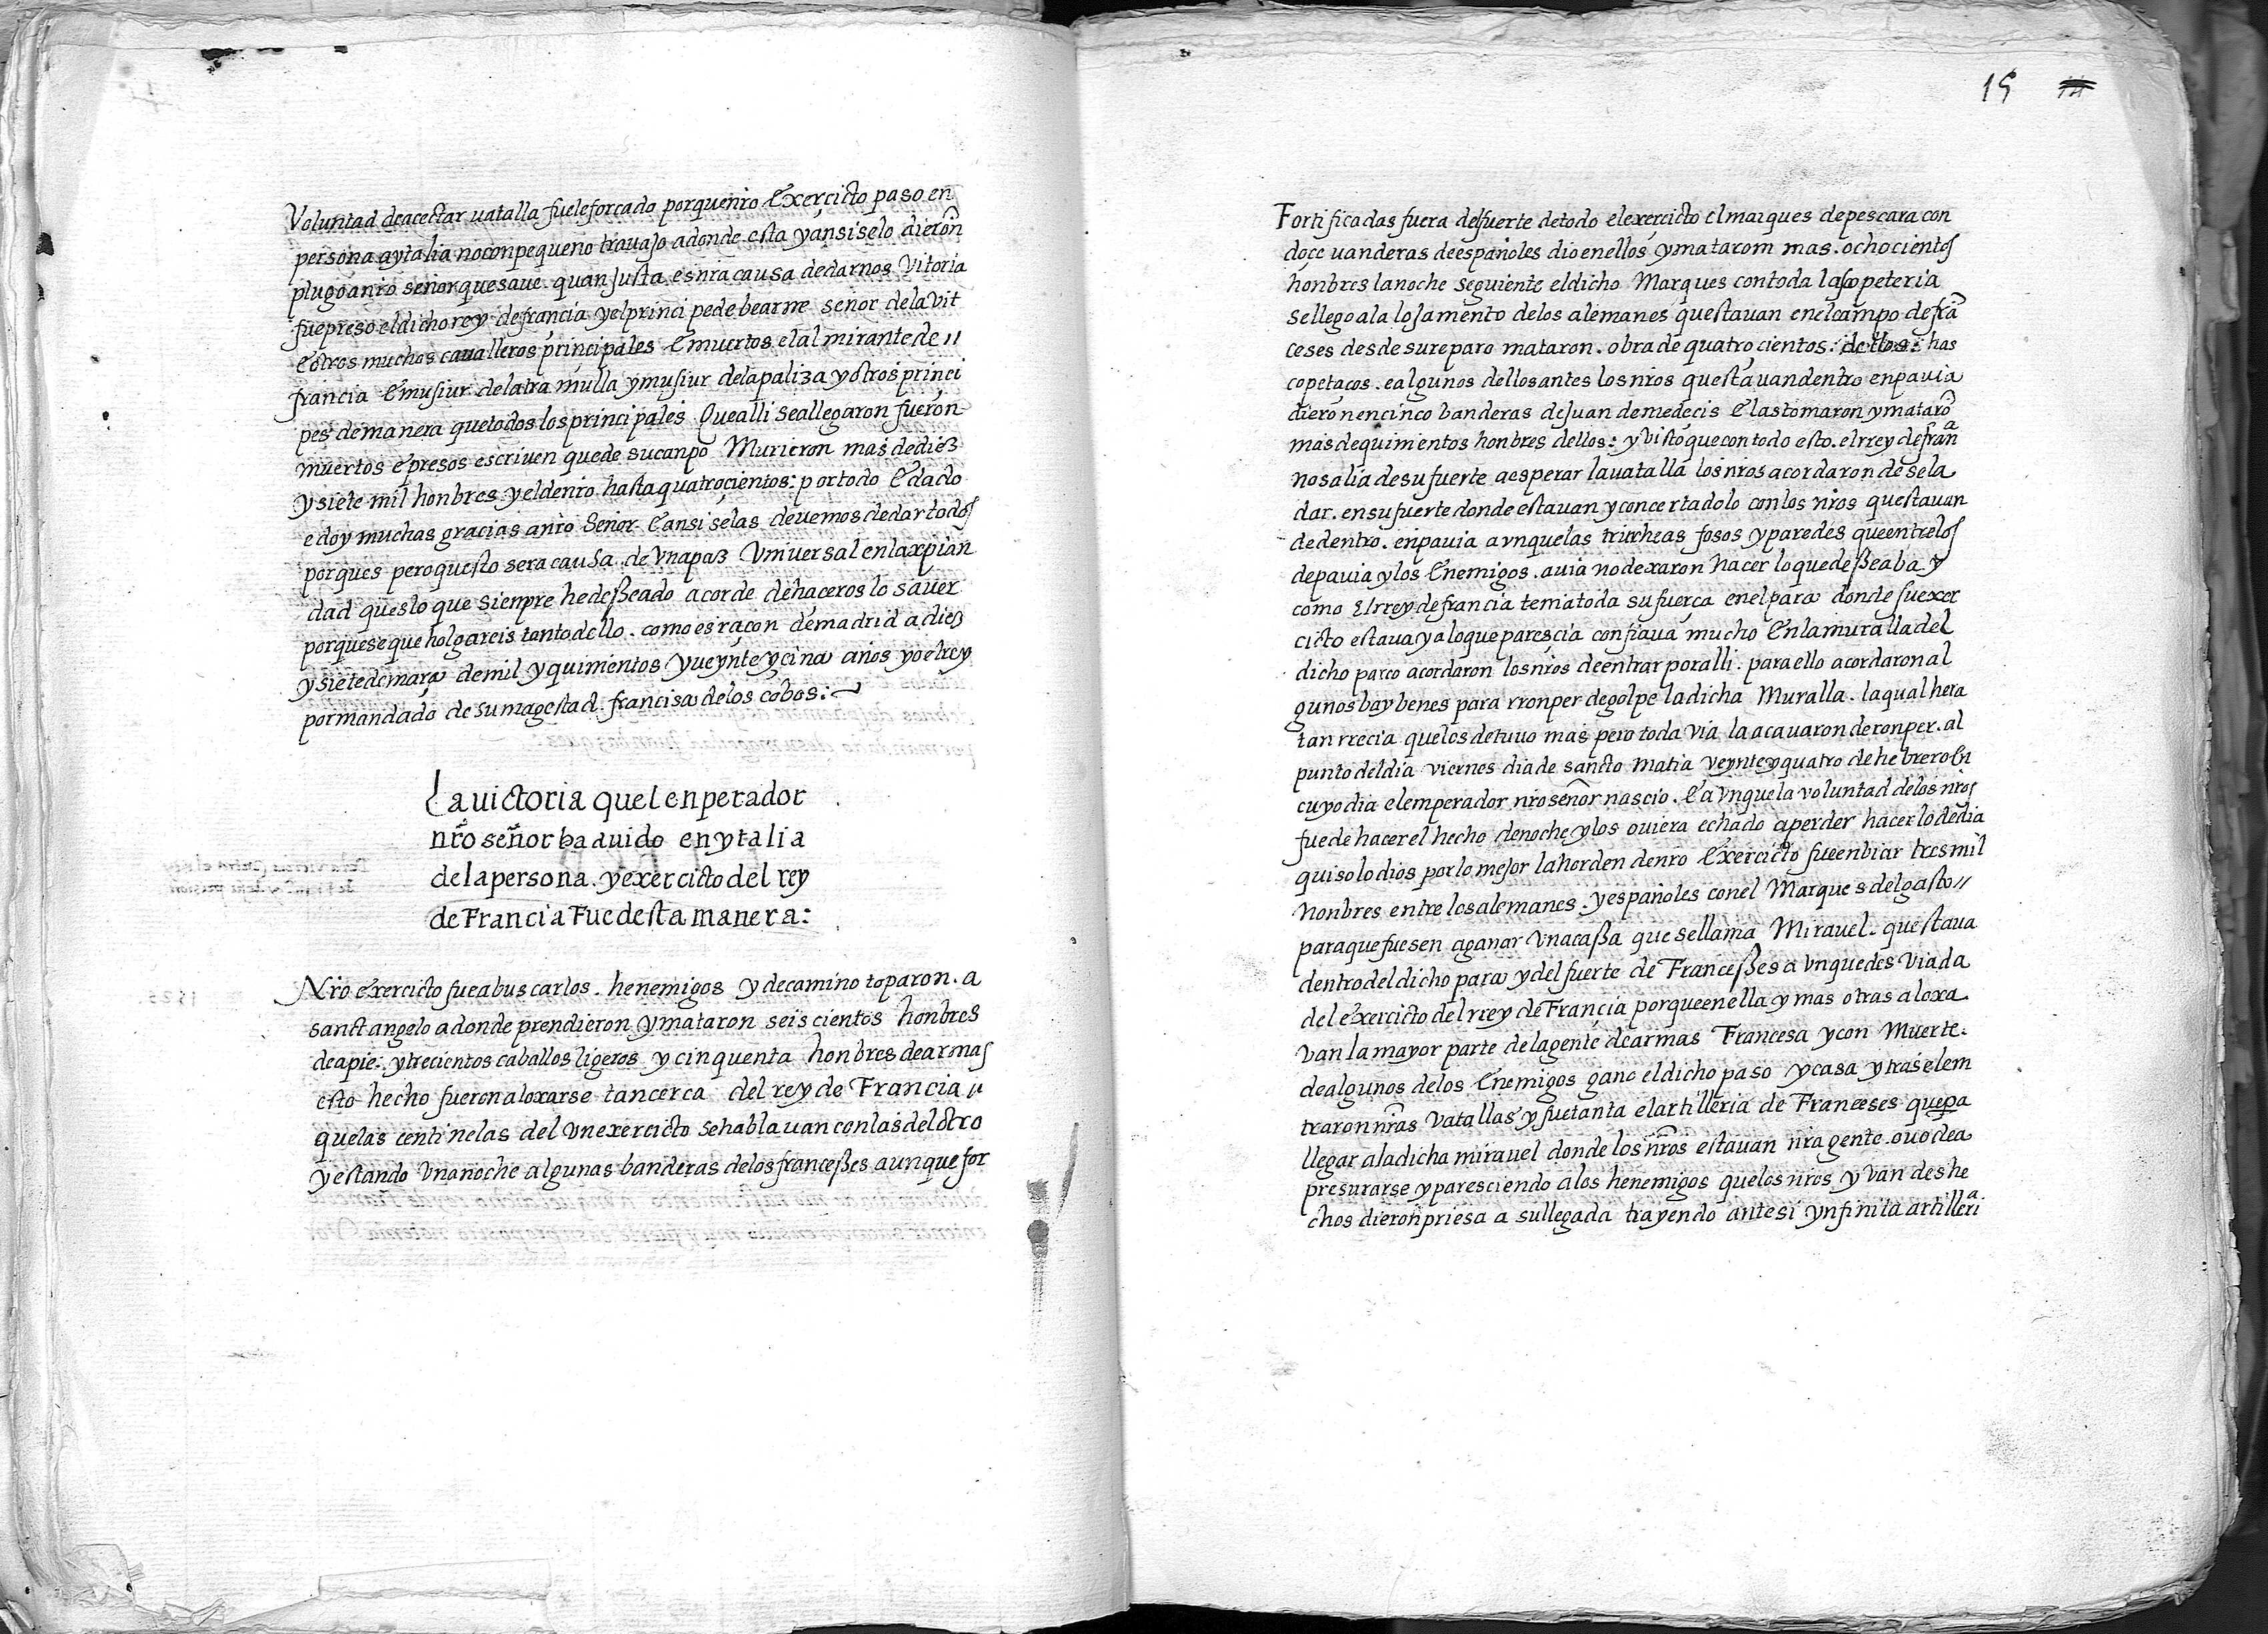 Voluntad deacectar uatalla fueleforcado porquenro Exercicto paso en
persona aytalia noconpequeno trauajo adonde esta yansiselo dierōn
plugo anro señorquesaue quan Justa esnra causa dedarnos Vitoria
fuepreso eldichorey defrancia yelprincipedebearne señor delavit
Eotros muchos caualleros principales Emuertos elalmirantede //
francia Emusiur delatramulla ymusiur delapaliza yotrosprinci
pes demanera quetodoslosprincipales Quealli seallegaron fueron
muertos epresos escriuen quede sucanpo Murieron mas dediez
ysiete mil honbres yeldenro hasta quatrocientos: portodo Edado
edoy muchas gracias anro Señor Eansi selas deuemos dedar todos
porques peroquesto sera causa de Vnapaz Vniuersal enlaxpian
dad queslo que sienpre hedesseado acorde dehaceroslo sauer
porqueseque holgareis tantodello. como es raçon demadrid adiez
ysietedemarço demil yquinientos yueynte yçinco años yo elrey
pormandado de sumagestad francisco delos cobos:~
La uictoria quel enperador
nrō señor ha auido enytalia
delapersona. yexercicto del rey
de Francia Fue desta manera:
Nro exercicto fue abuscarlos. henemigos y decamino toparon. a
sanctangelo adonde prendieron ymataron seiscientos honbres
deapie: ytrecientos caballos ligeros y cinquenta honbres dearmas
esto hecho fueron aloxarse tancerca del rey de Francia //
quelas centinelas del vnexercicto sehablauan conlasdelotro
yestando vnanoche algunas banderas delosfrancesses aunque for
15 14
Fortificadas fuera delfuerte detodo elexercicto elmarques depescara con
doçe uanderas deespañoles dioenellos ymatarom mas. ochocientos
honbres lanoche seguiente eldicho Marques contoda lascopeteria
sellegoala losamento delos alemanes questauan enelcampo defrā
ceses desde sureparo mataron. obrade quatrocientos: dellos: has
copetaços. ealgunos dellosantes losnros questauandentro enpauia
dieronencinco banderas deJuan demedecis Elastomaron ymatarō
masdequinientos honbres dellos: y visto quecontodo esto. elrrey defranᵃ
nosalia desufuerte aesperar lauatalla losnros acordaron desela
dar. ensufuerte donde estauan yconcertadolo conlos nros questauan
dedentro. enpauia avnquelas trincheas fosos yparedes queentrelos
depauia ylos Enemigos. auia nodexaron hacer loquedesseaba y
como Elrrey defrancia teniatoda sufuerça enelparco donde suexer
cicto estaua yaloqueparescia confiaua mucho Enlamuralladel
dicho parco acordaron losnros deentrar poralli. paraello acordaronal
gunosbaybenes para rronper degolpe ladicha Muralla. laqual hera
tanrrecia quelosdetuuo mas pero todavia laacauaron deronper. al
punto deldia viernes diade sancto Matia veynteyquatro dehebrero En
cuyodia elemperador nro señor nascio. Eavnquela voluntad delosnros
fuede hacerel hecho denoche ylos ouiera echado aperder hacerlodedia
quisolodios porlo mejor lahorden denro Exercicto fueenbiar tresmil
honbres entre losalemanes. yespañoles conel Marques delgasto //
paraquefuesen aganar vnacassa que sellama Mirauel. questaua
dentrodeldicho parco ydelfuerte de Francesses avnquedesviada
del exercicto delrrey de Francia porqueenella y mas otras aloxa.
van lamayor parte delagente dearmas Francesa ycon Muerte.
dealgunos delos Enemigos gano eldicho paso ycasa ytraselem
traron nrās vatallas y fuetanta elartilleria de Franceses quepa
llegar aladicha mirauel donde los nrōs estauan nra gente. ouodea
presurarse yparesciendo alos henemigos quelosnros yvan deshe
chos dieronpriesa a sullegada trayendo antesi ynfinita artilleriᵃ.